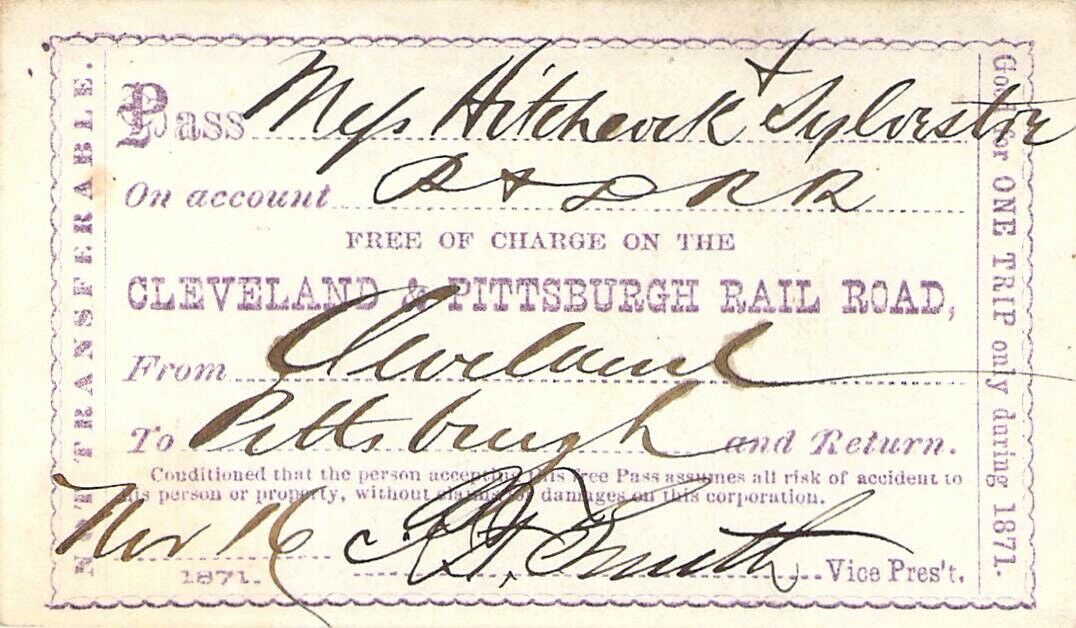 NOT TRANSFERABLE.
Pass Mess Hitchcock + Sylvester
On account P & D R R
FREE OF CHARGE ON THE
CLEVELAND & PITTSBURGH RAIL ROAD,
From Cleveland
To Pittsburgh and Return.
Conditioned that the person accepting this Free Pass assumes all risk of accident to
his person or property, without claims for damages on this corporation.
Nov 16
1871.
Smith Vice Pres't.
Good for ONE TRIP only during 1871.